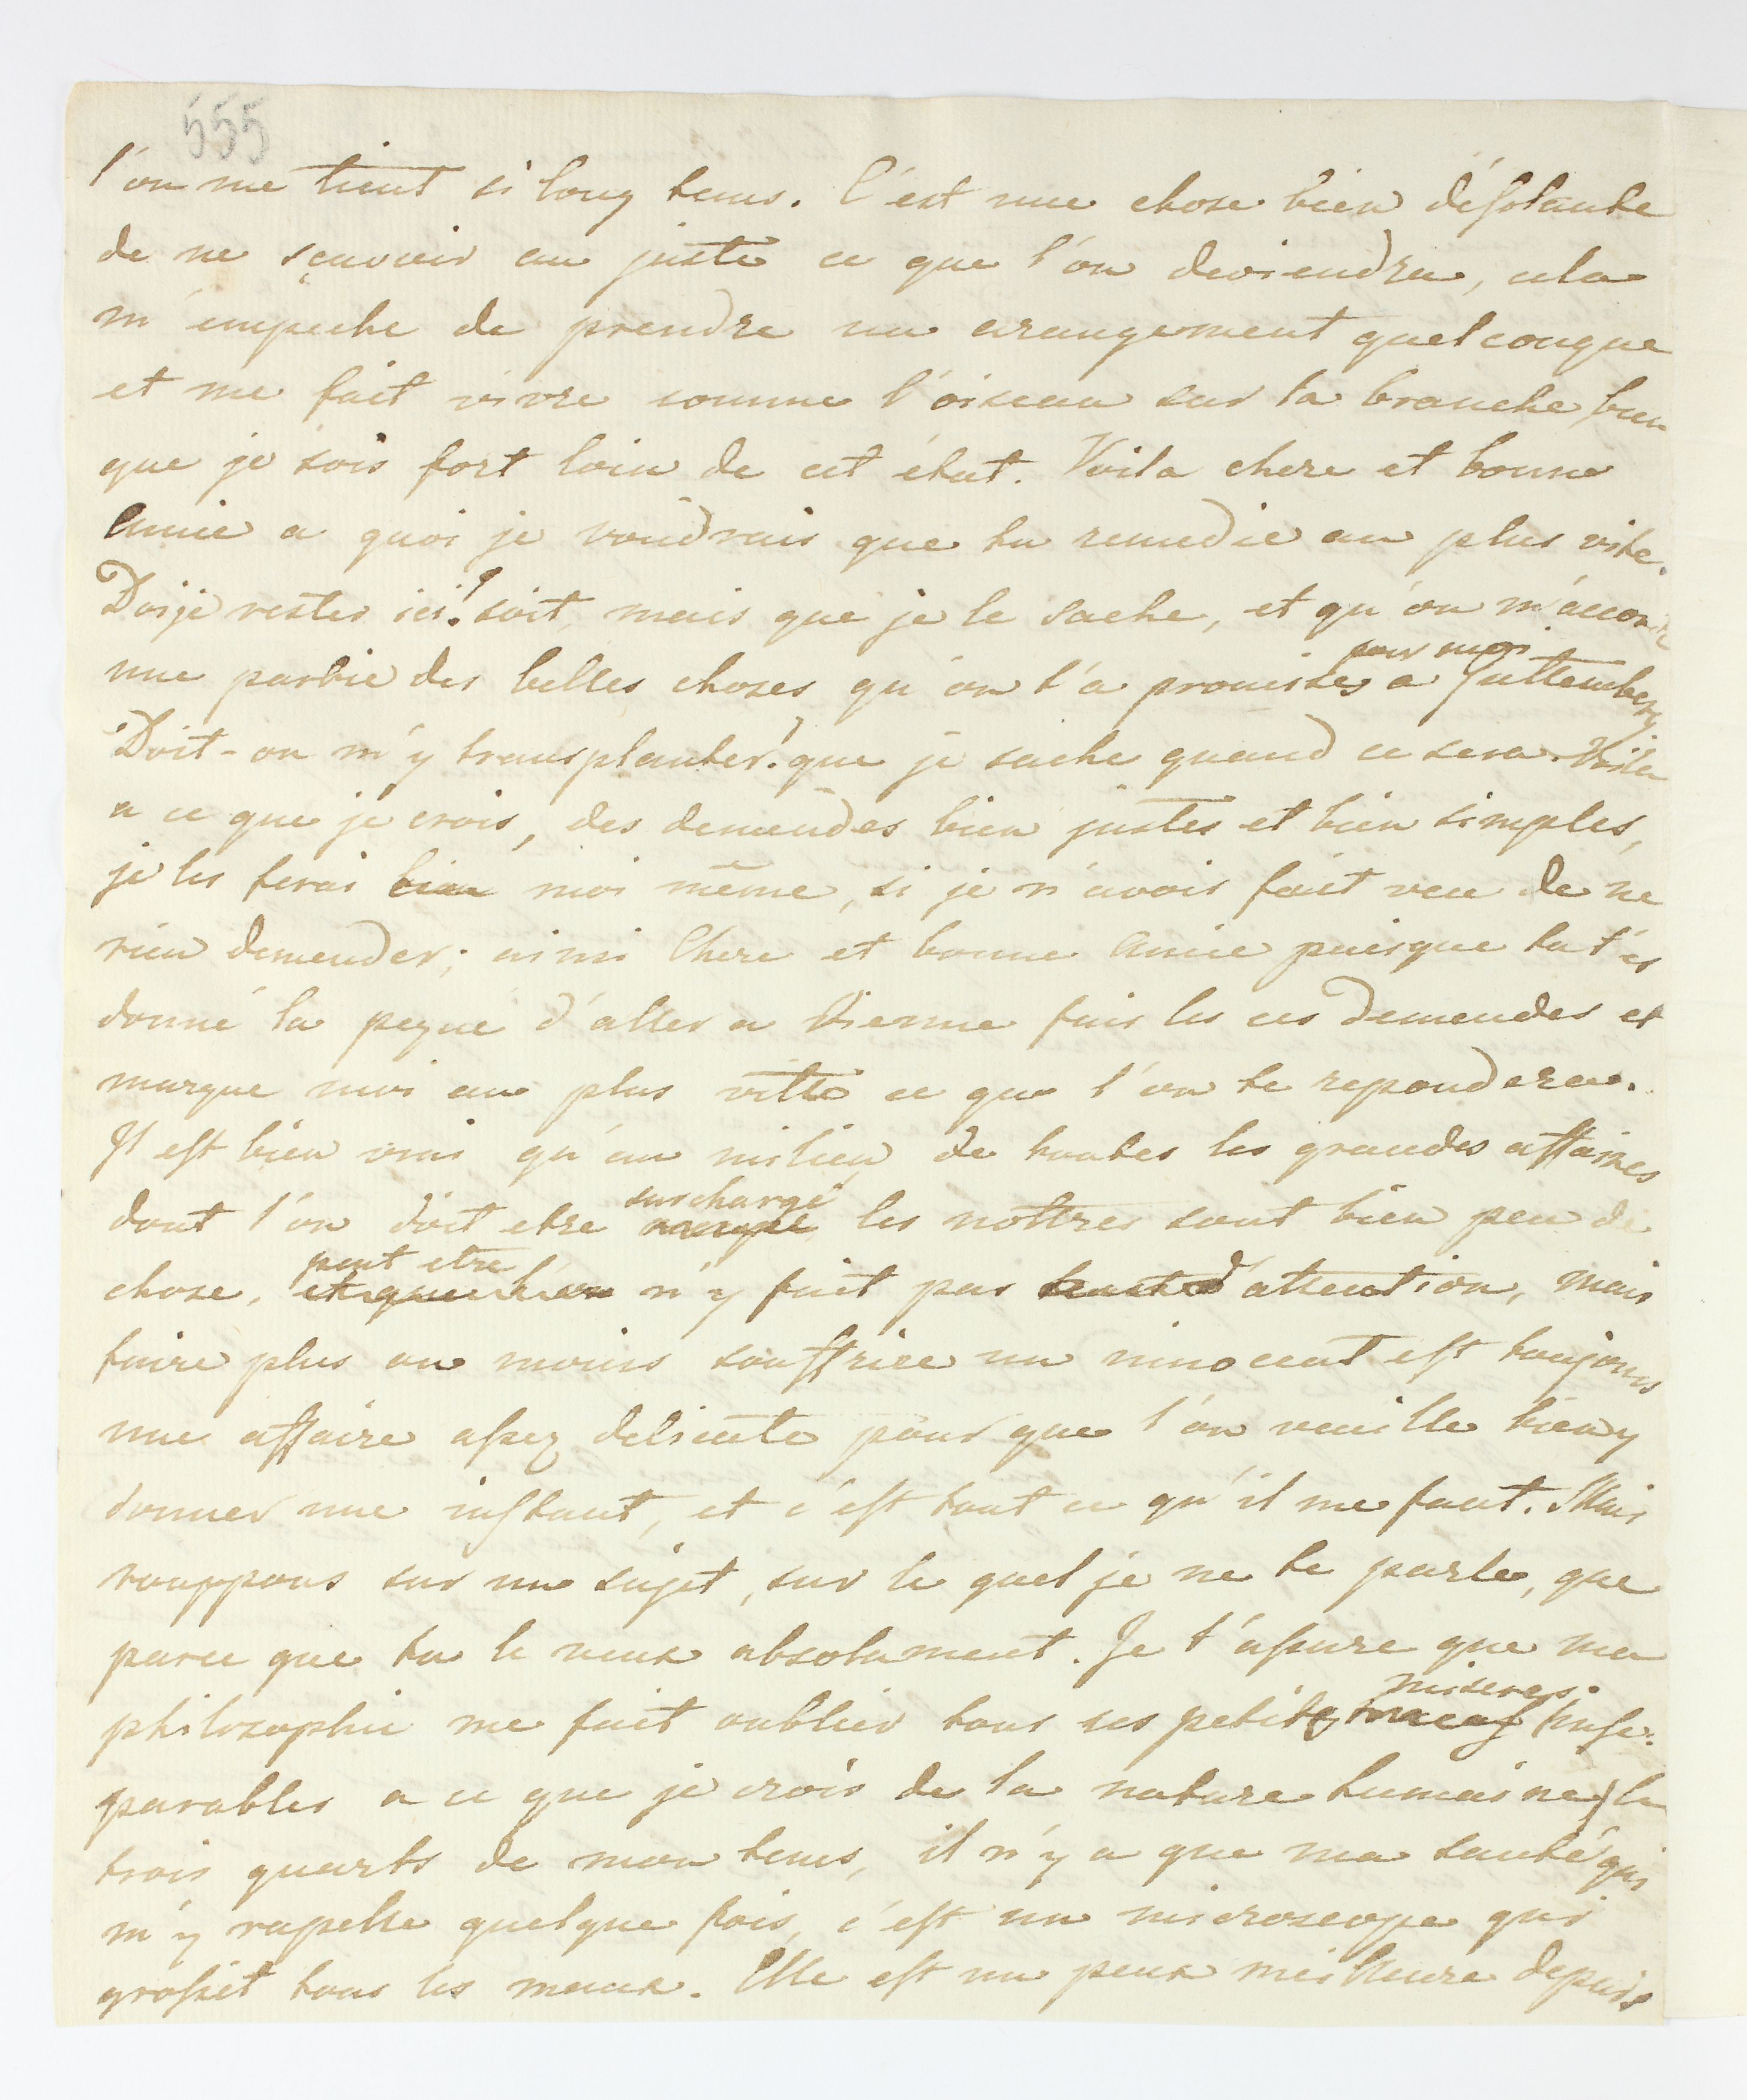 555
l'on me tient si long tems. C'est une chose bien désolante
de ne sçavoir au juste ce que l'on deviendra, cela
m'empeche de prendre un arangement quelconque
et me fait vivre comme l'oiseau sur la branche bien
que je sois fort loin de cet état. Voila chere et bonne
Amie a quoi je voudrais que tu remedie au plus vite.
Doije rester ici? soit, mais que je le sache, et qu'on m'accorde
pour moi
une partie des belles choses qu'on t'a promises a Guttemberg
Doit-on m'y transplanter? que je sache quand ce sera. Voila
a ce que je crois, des demendes bien justes et bien simples,
je les ferai bien moi même, si je n'avois fait veu de ne
rien demender; ainsi Chere et bonne Amie puisque tu t'es
donné la peyne d'aller a Vienne fais les ces demendes et
marque moi au plus vitte ce que l'on te repondera.
Il est bien vrai qu'au milieu de toutes les grandes affaires
surchargé
dont l'on doit etre occupé les nottres sont bien peu de
peut etre
chose, et que l'on n'y fait pas d'attention, mais
faire plus ou moins souffrire un innocent est toujours
une affaire assez delicate pour que l'on veuille bien y
donner une instant, et c'est tout ce qu'il me faut. Mais
rouppons sur un sujet, sur le quel je ne te parle, que
parce que tu le veux absolument. Je t'assure que ma
miseres
philosophie me fait oublier tous ses petites inse:
parables a ce que je crois de la nature humaine) le
trois quarts de mon tems, il n'y a que ma santé qui
m'y rapelle quelque fois, c'est un microscope qui
grossit tous les maux. Elle est un peux meilleure depuis